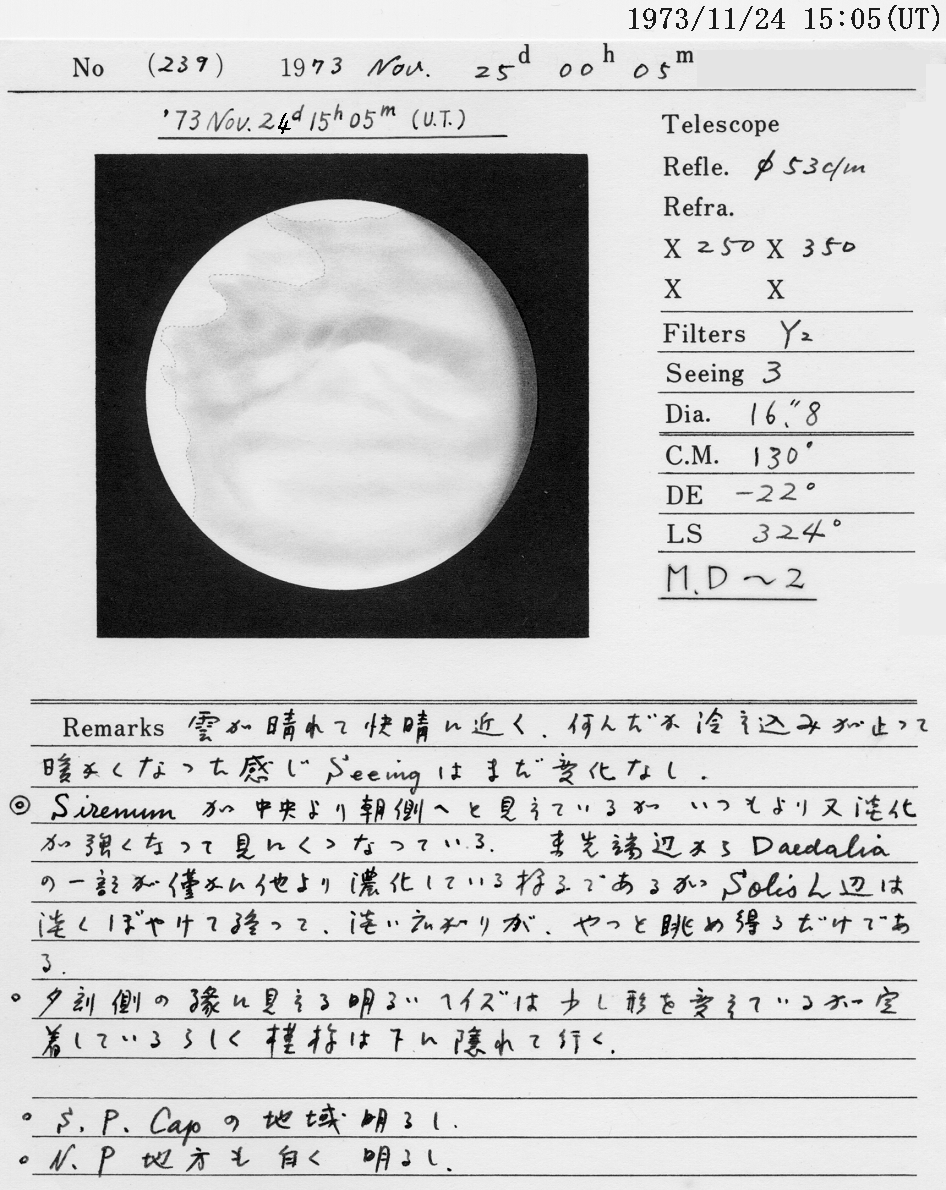 1973/11/24 15:05(UT)
No (239) 1973 Nov. 25d 00h 05m
'73 Nov. 24d 15h 05m (U.T.)
Telescope
Refle. φ 53c/m
Refra.
X 250 X 350
X X
Filters Y2
Seeing 3
Dia. 16."8
C.M. 130°
DE -22°
LS 324°
M.D ~2
Remarks 雲が晴れて快晴に近く. 何んだか冷え込みが止って
暖かくなった感じ Seeing はまだ変化なし.
◎ Sirenum が中央より朝側へと見えているが いつもより又淡化
が強くなって見にくくなっている. 東先端辺から Daedalia
の一部が僅かに他より濃化している様子であるが Solis L 辺は
淡くぼやけて 淡い広がりが、やっと眺め得るだけであ
る.
○ 夕刻側の縁に見える明るいヘイズは少し形を変えているが 定
着しているらしく模様は下に隠れて行く.
○ S. P. Cap の地域 明るし.
○ N. P 地方も白く 明るし.